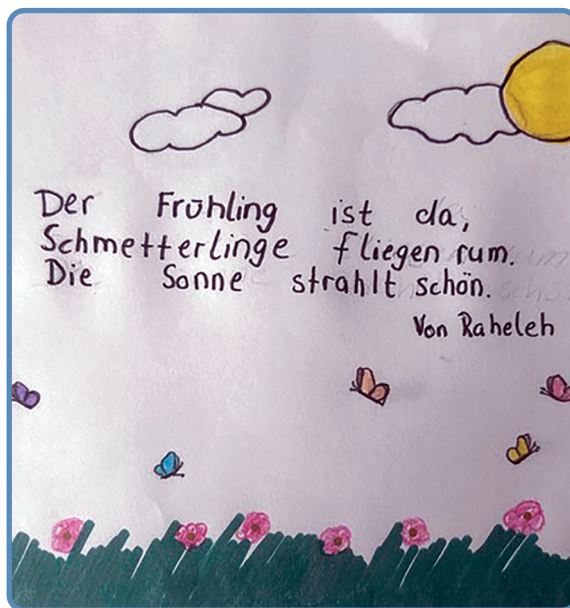 Der Frühling ist da,
Schmetterlinge fliegen rum.
Die Sonne strahlt schön.
Von Raheleh